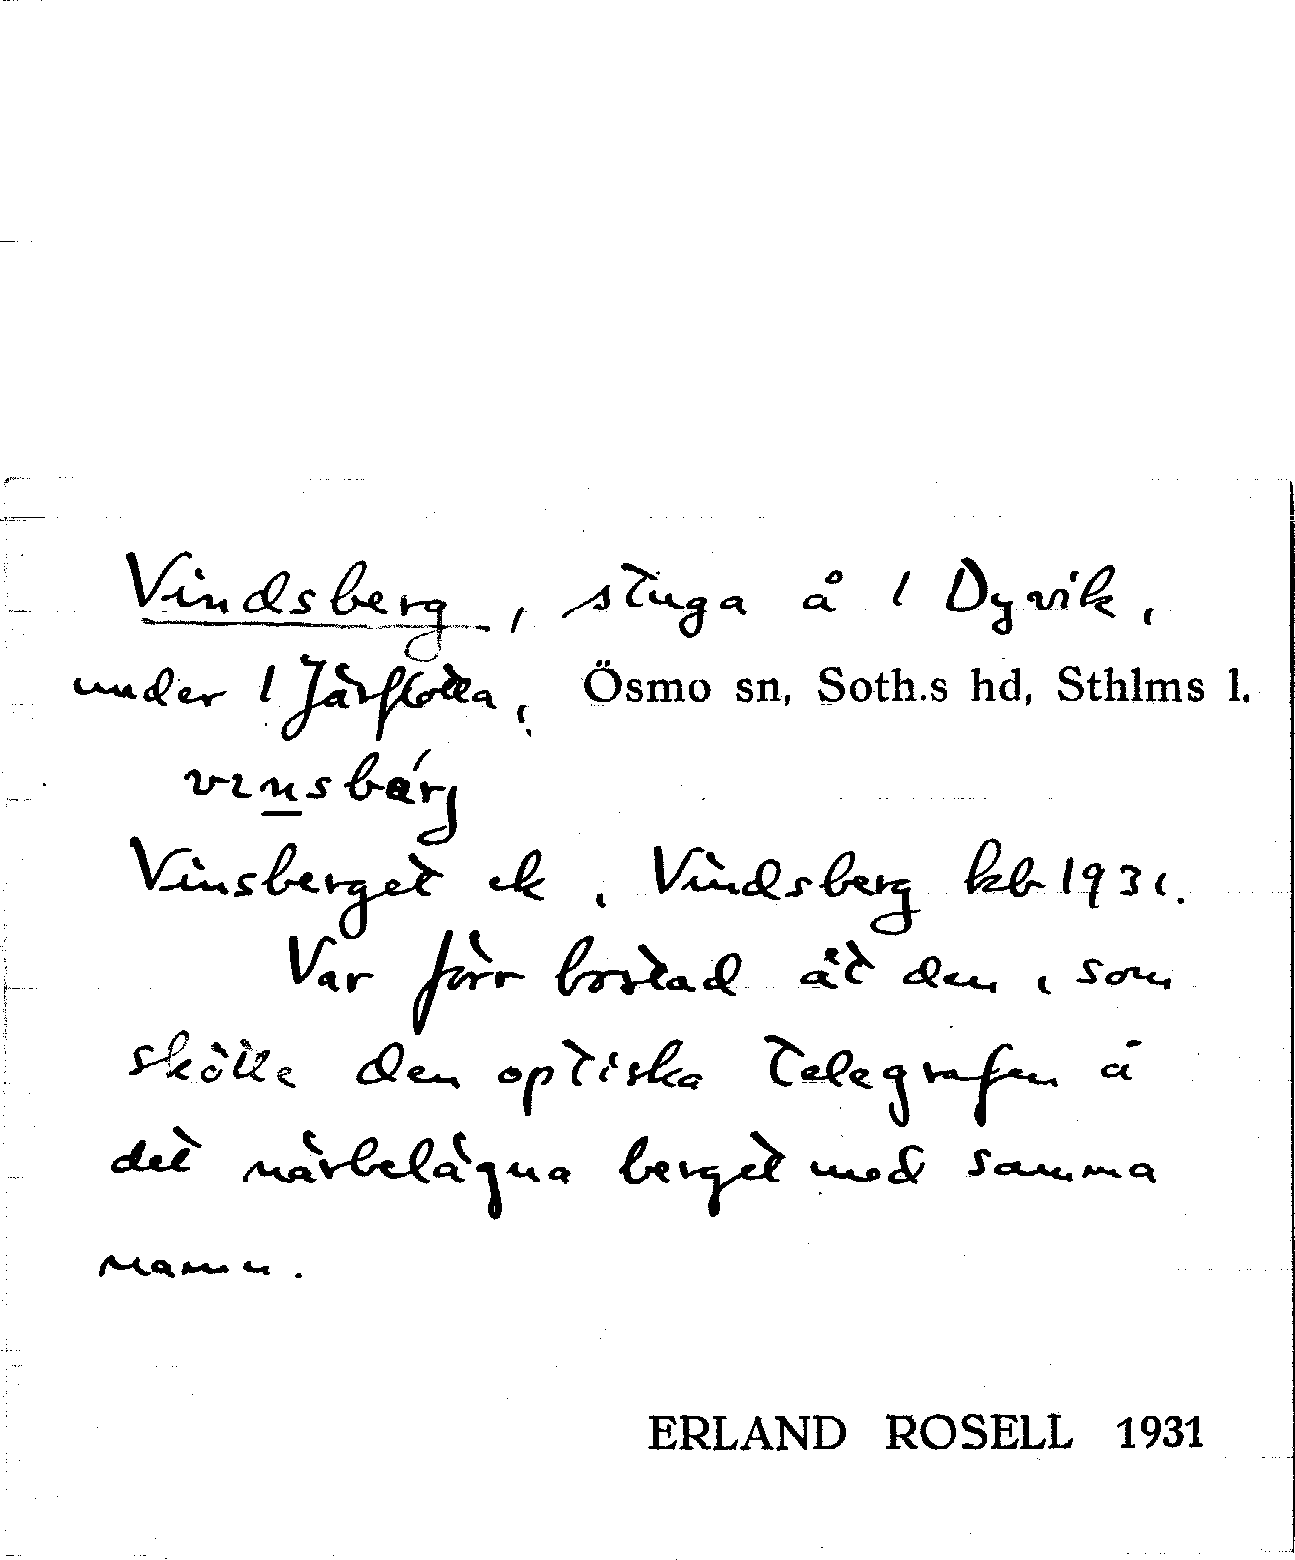 Vindsberg, stuga å / Dyvik,
under / Järflotta, Ösmo sn, Soth.s hd, Sthlms l.
vinsbärj
Vinsberget ek, Vindsberg kb 1931.
Var förr bostad åt den, som
skötte den optiska telegrafen å
det närbelägna berget med samma
namn.
ERLAND ROSELL 1931